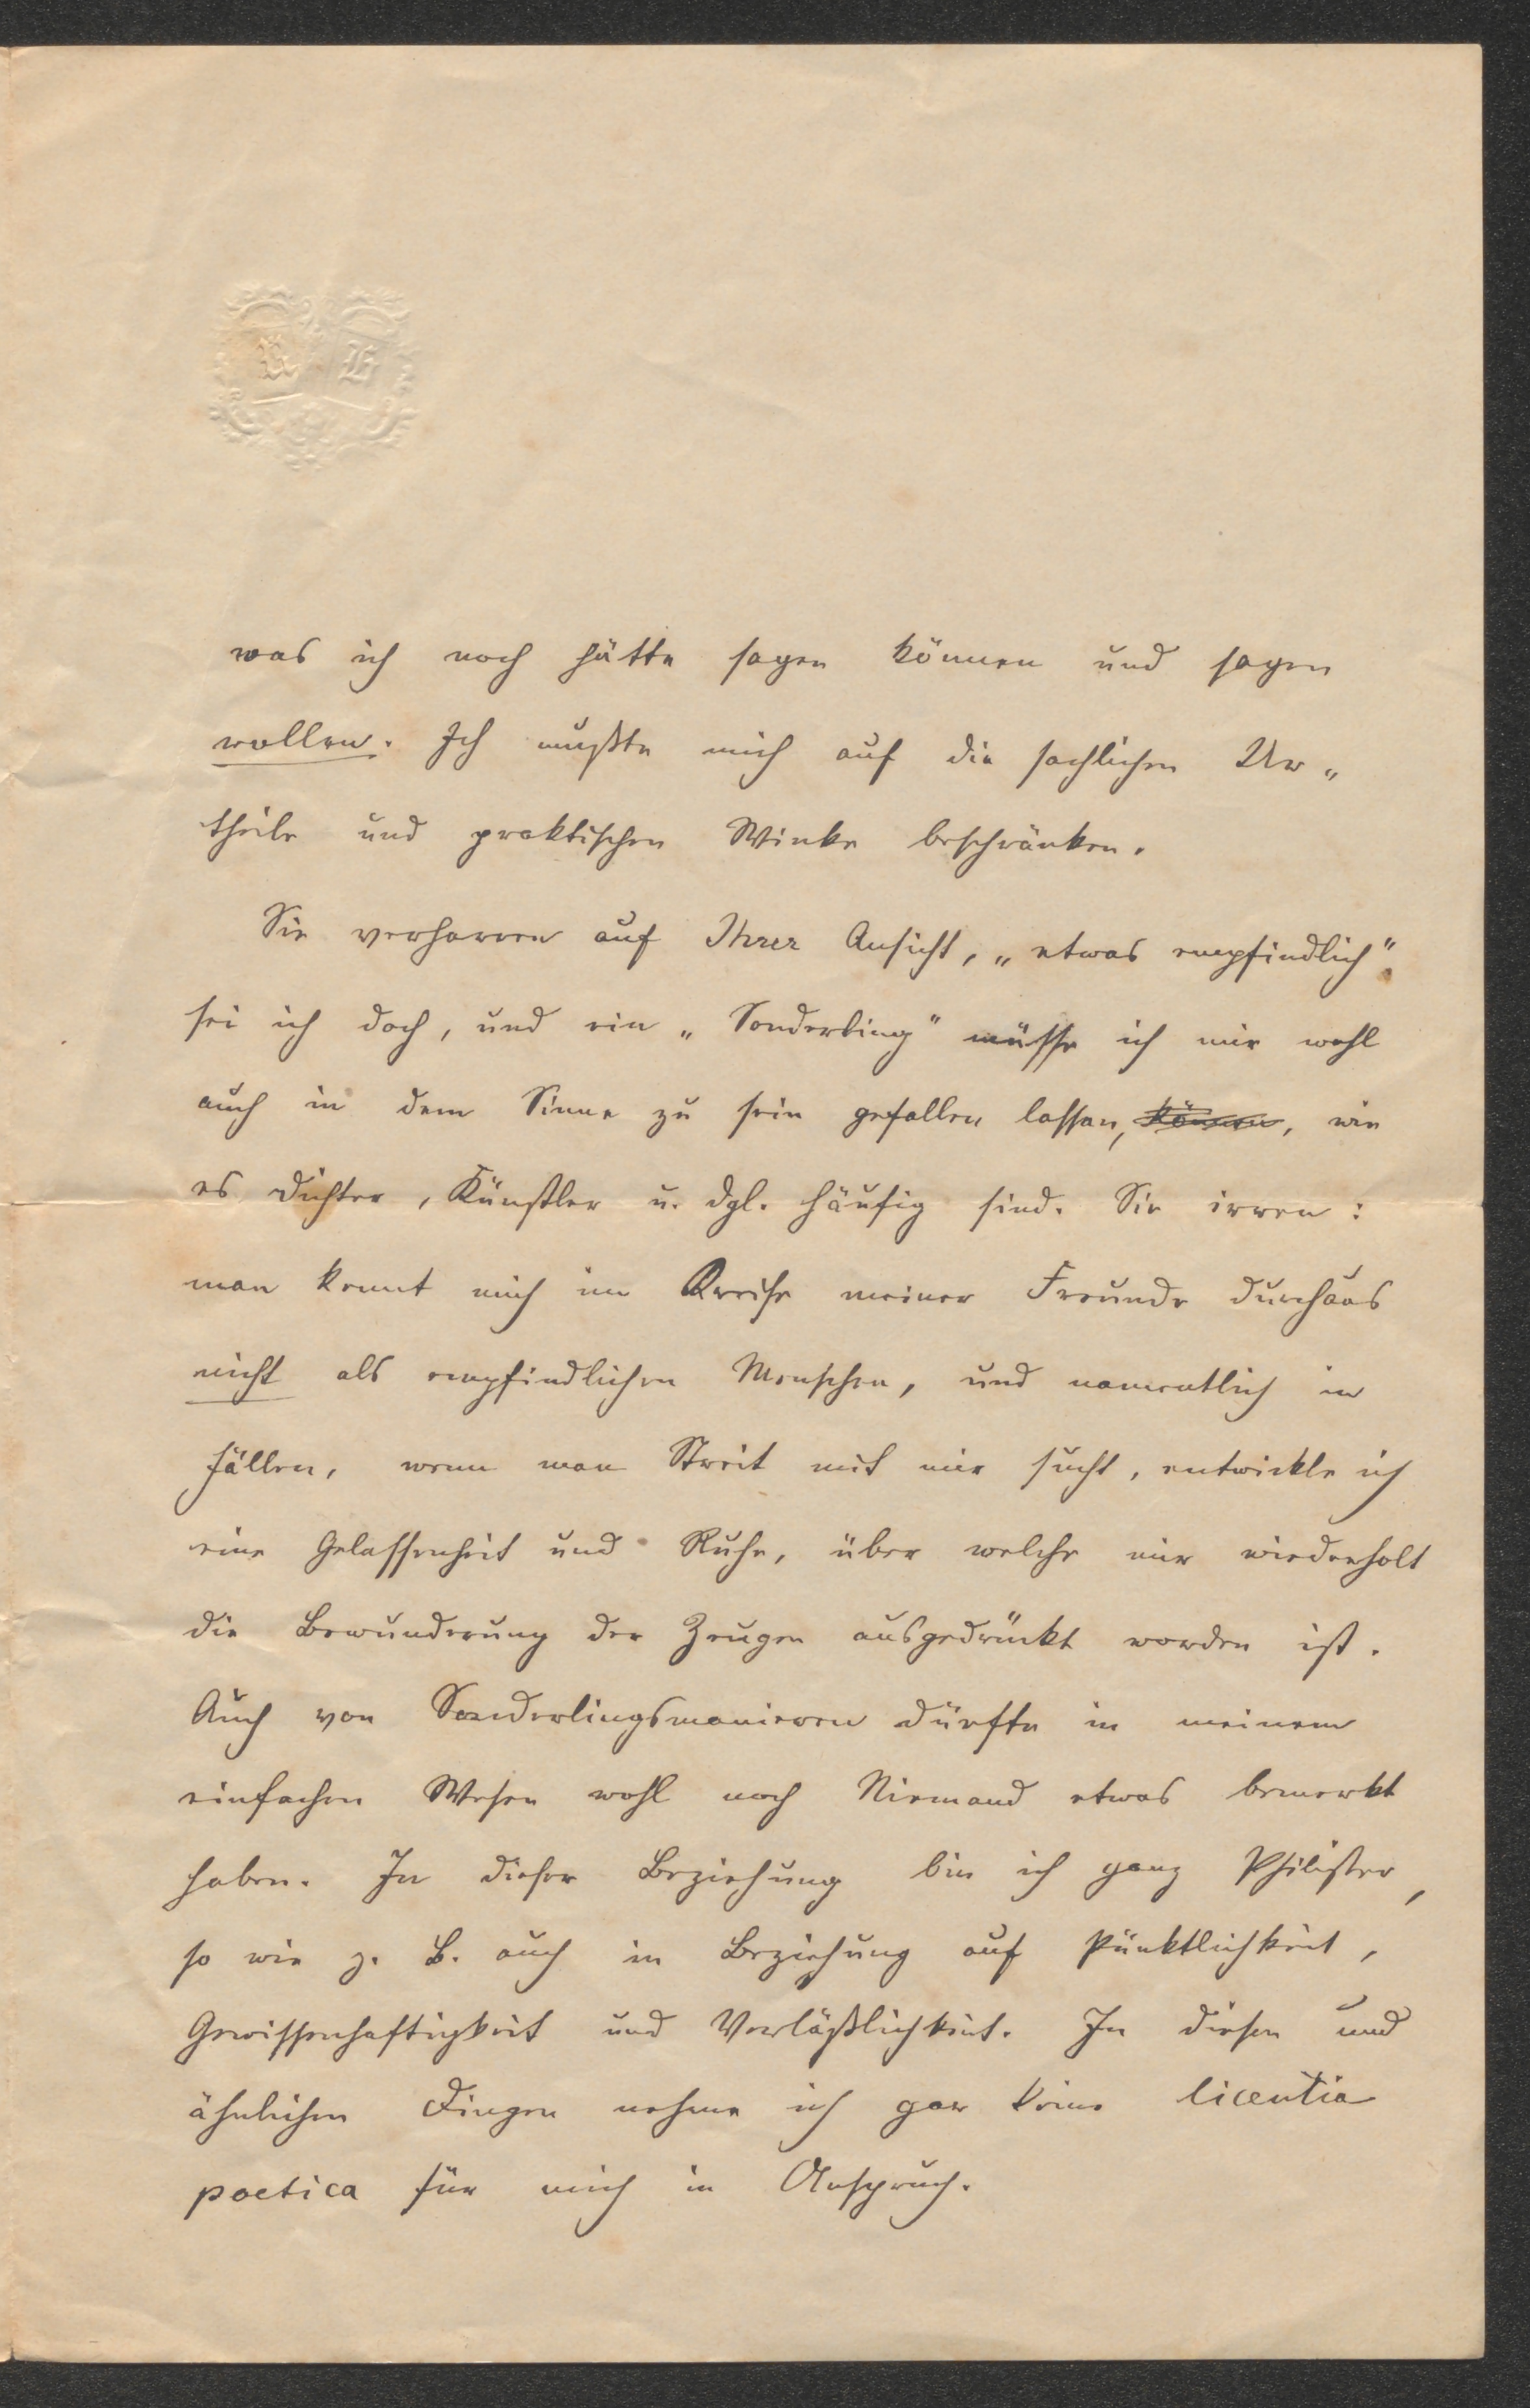 was ich noch hätte sagen können und sagen
wollen. Ich mußte mich auf die sachlichen Ur„
theile und praktischen Winke beschränken.
Sie verharren auf Ihrer Ansicht, „etwas empfindlich“
sei ich doch, und ein „Sonderling“ müsse ich mir wohl
auch in dem Sinne zu sein gefallen lassen, können, wie
es Dichter, Künstler u. dgl. häufig sind. Sie irren:
man kennt mich im Kreise meiner Freunde durchaus
nicht als empfindlichen Menschen, und namentlich in
Fällen, wenn man Streit mit mir sucht, entwickle ich
eine Gelassenheit und Ruhe, über welche mir wiederholt
die Bewunderung der Zeugen ausgedrückt worden ist.
Auch von Sonderlingsmanieren dürfte in meinem
einfachen Wesen wohl noch Niemand etwas bemerkt
haben. In dieser Beziehung bin ich ganz Philister,
so wie z. B. auch in Beziehung auf Pünktlichkeit,
Gewissenhaftigkeit und Verläßlichkeit. In diesen und
ähnlichen Dingen nehme ich gar keine licentia
poetica für mich in Anspruch.